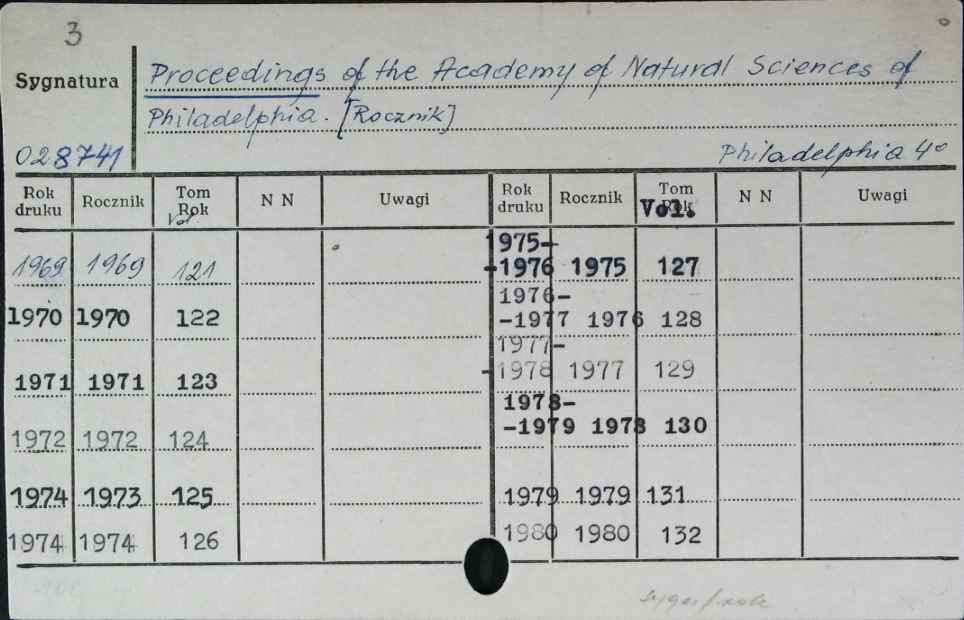 3
Sygnatura
Proceedings of the Academy of Natural Sciences of
Philadelphia. [Rocznik]
028741
Philadelphia 4°
Rok druku Rocznik Tom Rok Vol. N N Uwagi Rok druku Rocznik Tom Rok Vol. N N Uwagi
1969 1969 121
1970 1970 122
1971 1971 123
1972 1972 124
1974 1973 125
1974 1974 126
1975-
-1976 1975 127
1976-
-1977 1976 128
1977-
-1978 1977 129
1978-
-1979 1978 130
1979 1979 131
1980 1980 132